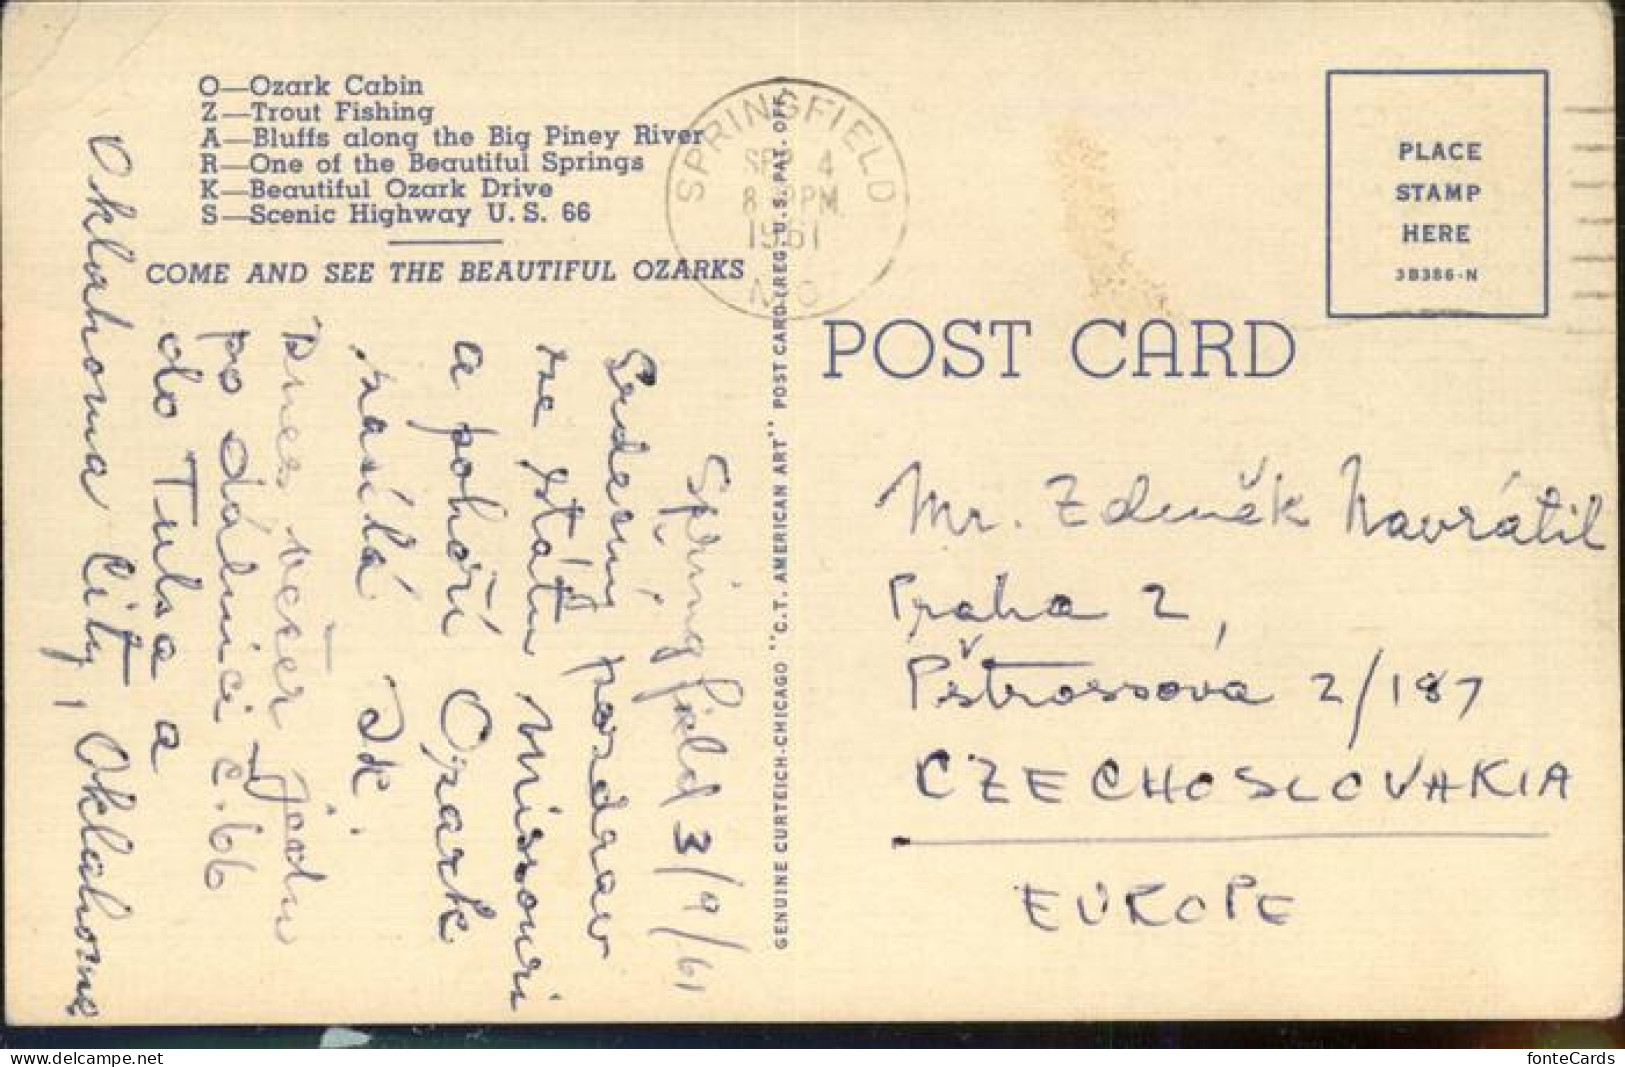 O—Ozark Cabin
Z—Trout Fishing
A—Bluffs along the Big Piney River
R—One of the Beautiful Springs
K—Beautiful Ozark Drive
S—Scenic Highway U. S. 66
COME AND SEE THE BEAUTIFUL OZARKS
Springfield 3/9/61
Srdečný pozdrav
ze státu Missouri
a pohoří Ozark
zasílá
Dnes večer jedu
po dálnici č. 66
do Tulsa a
Oklahoma City, Oklahoma
GENUINE CURTEICH-CHICAGO "C.T. AMERICAN ART" POST CARD (REG. U.S. PAT. OFF.)
SPRINGFIELD
SEP 4
PM
1961
MO
PLACE
STAMP
HERE
3B386-N
POST CARD
Mr. Zdeněk Navrátil
Praha 2,
Pštrossova 2/187
CZECHOSLOVAKIA
EUROPE
fonteCards